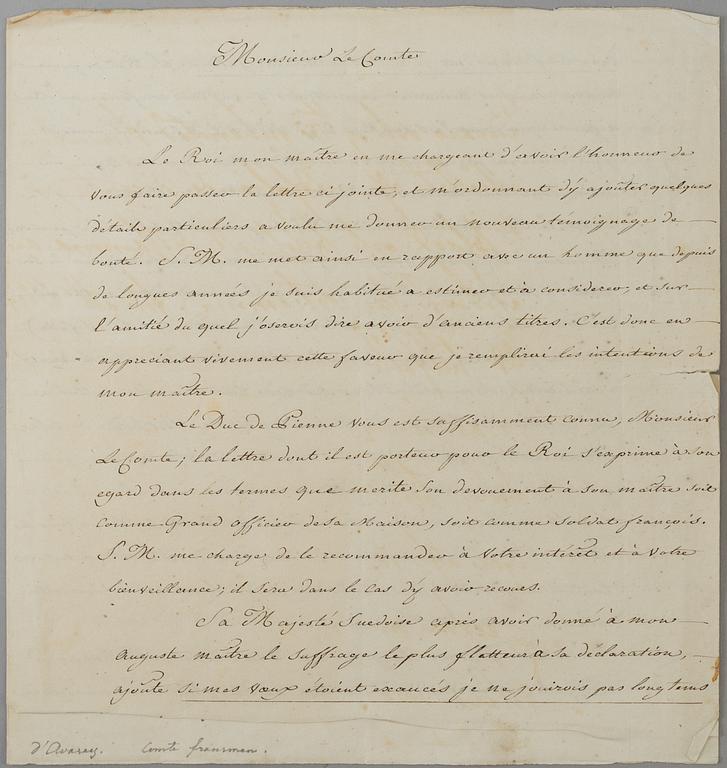 Monsieur Le Comte
Le Roi mon maître en me chargeant d'avoir l'honneur de
vous faire passer la lettre ci jointe, et m'ordonnant d'y ajoûter quelques
détails particuliers a voulu me donner un nouveau témoignage de
bonté. S. M. me met ainsi en rapport avec un homme que depuis
de longues années je suis habitué a estimer et à considerer; et sur
l'amitié du quel j'oserois dire avoir d'anciens titres. C'est donc en
appreciant vivement cette faveur que je remplirai les intentions de
mon maître.
Le Duc de Pienne vous est suffisamment connu, Monsieur
Le Comte; la lettre dont il est porteur pour le Roi s'exprime à son
egard dans les termes que merite son devouement à son maître soit
comme Grand officier de sa Maison, soit comme soldat françois.
S. M. me charge de le recommander à votre intérêt et à votre
bienveillance; il sera dans le cas d'y avoir recours.
Sa Majesté Suedoise après avoir donné à mon
Auguste maître le suffrage le plus flatteur à sa déclaration,
ajoûte si mes vœux étoient exaucés je ne jouirois pas longtems
d'Avaray. Comte fransman.